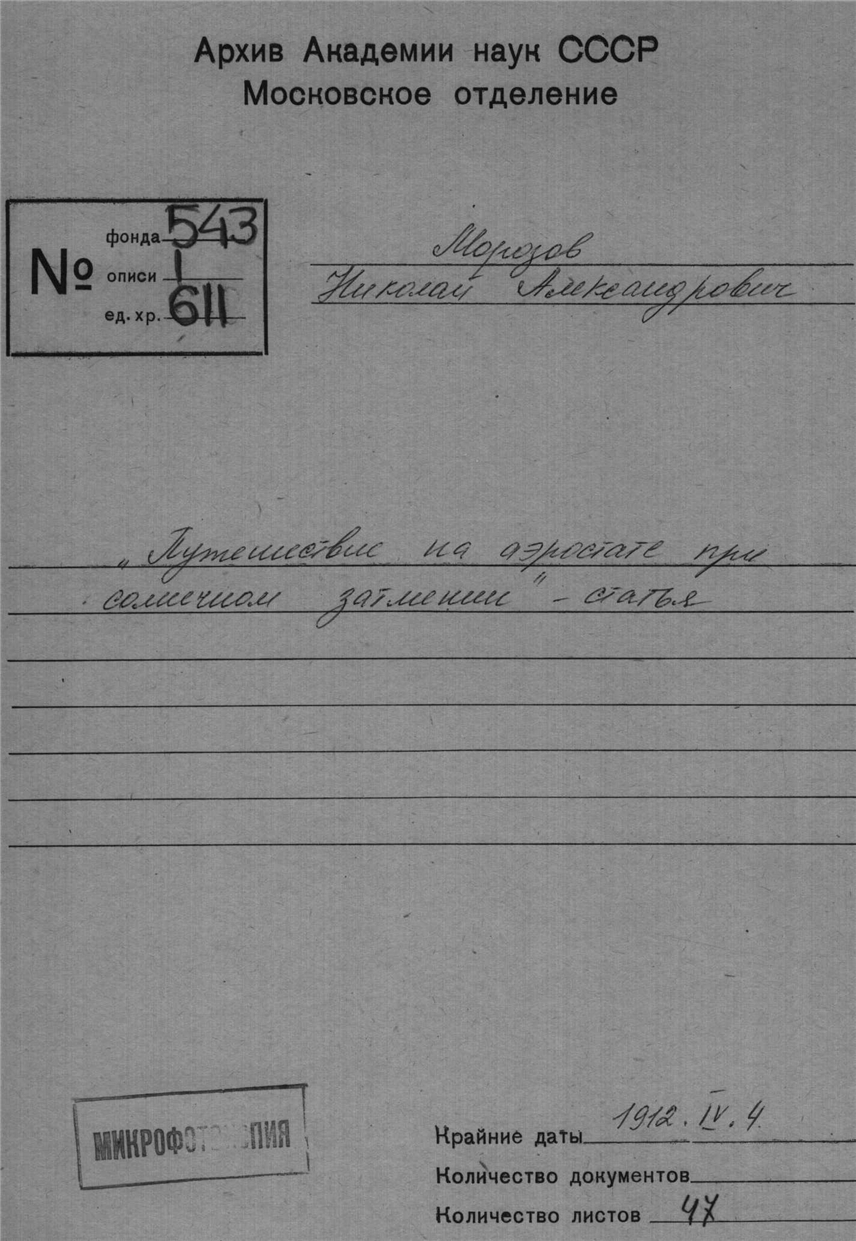 Архив Академии наук СССР
Московское отделение
№
фонда 543
описи 1
ед. хр. 611
Морозов
Николай Александрович
„Путешествие на аэростате при
солнечном затмении" - статья
МИКРОФОТОКОПИЯ
Крайние даты 1912. IV. 4
Количество документов
Количество листов 47